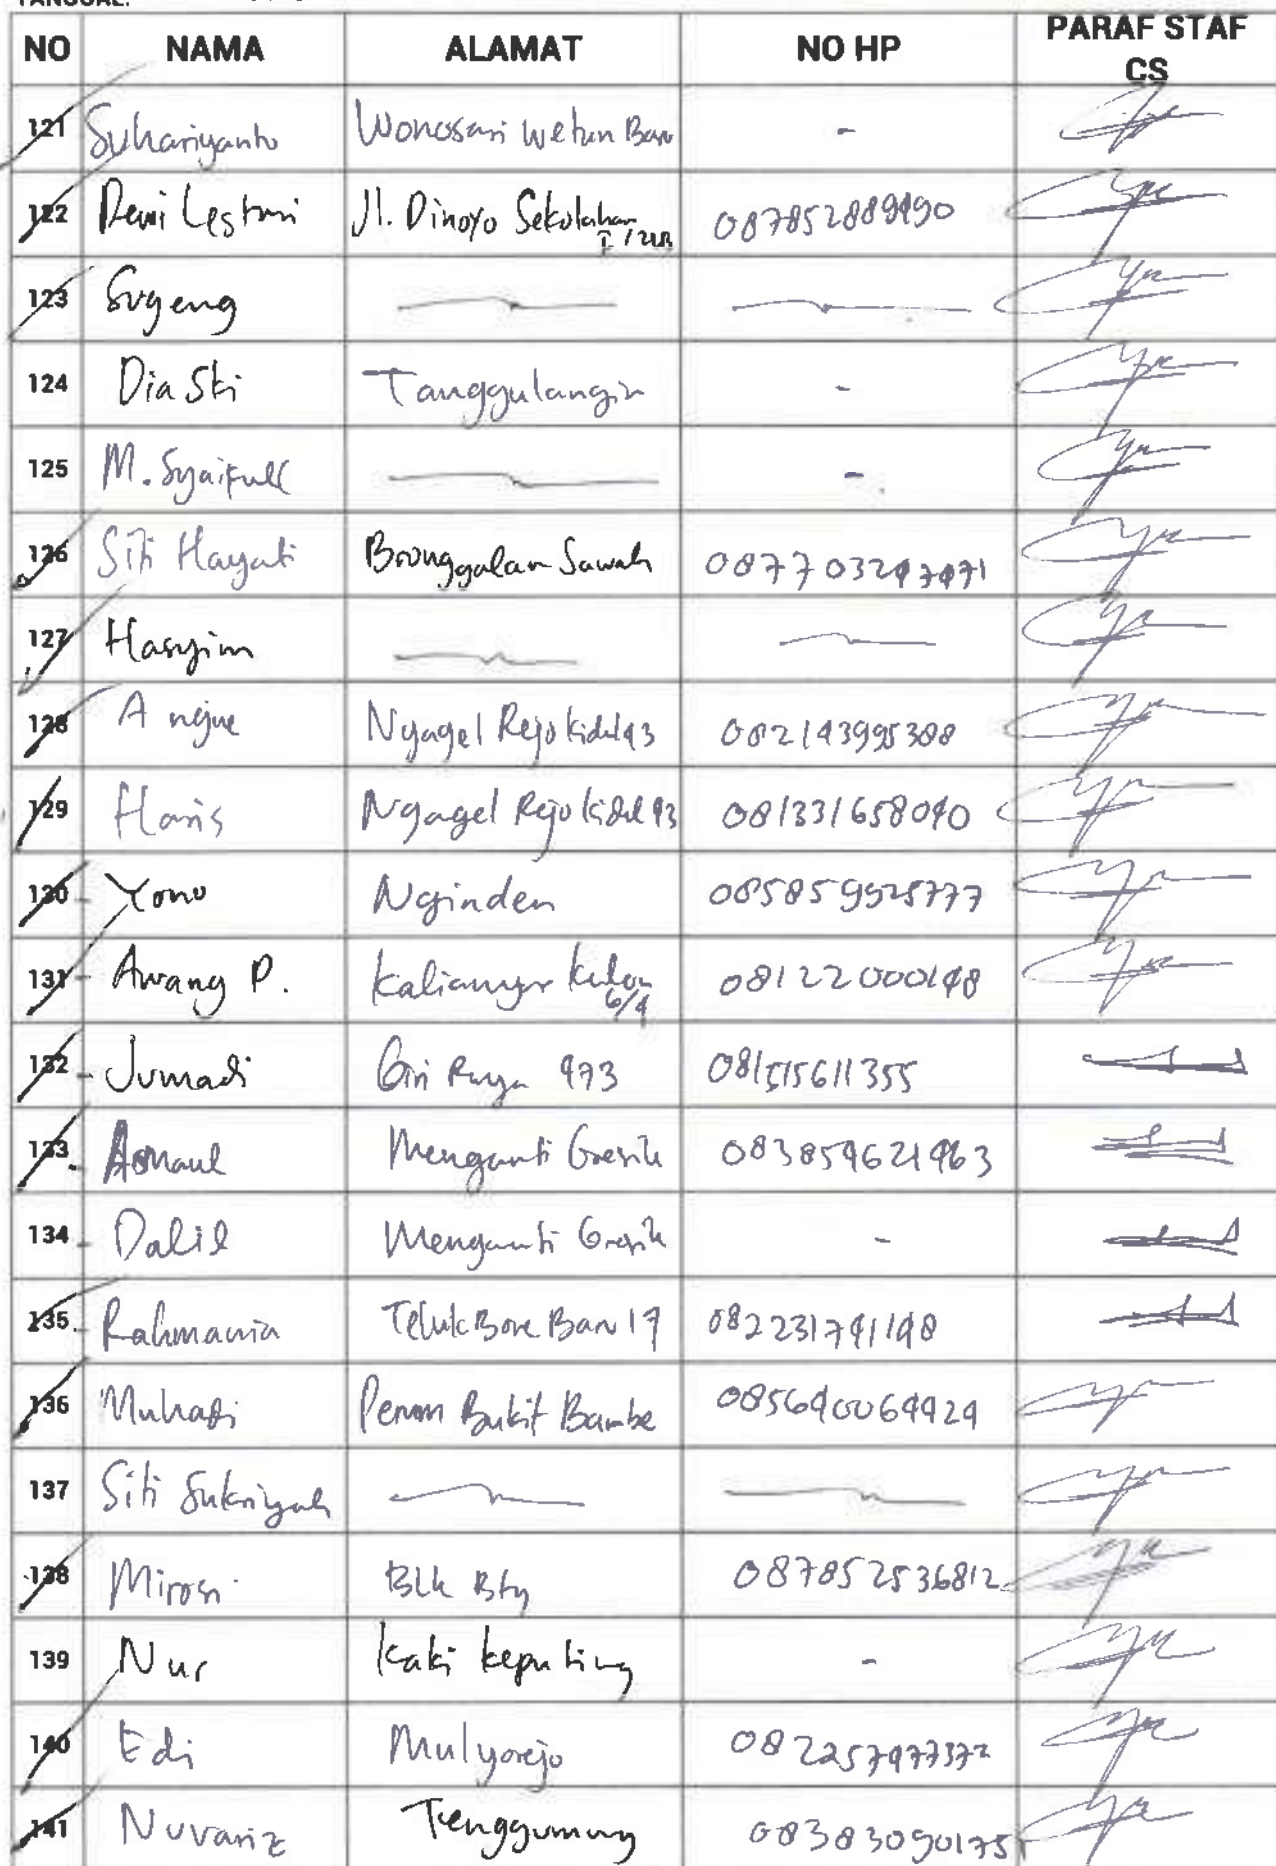 TANGGAL:
NO NAMA ALAMAT NO HP PARAF STAF CS
121 Suhariyanto Wonosari Wetan Baru -
122 Dewi Lestari Jl. Dinoyo Sekolahan 087852889490
123 Sugeng
124 Dia Sti Tanggulangin -
125 M. Syaifull -
126 Siti Hayati Bronggalan Sawah 087703247471
127 Hasyim
128 Ngagel Rejo Kidul 43 082143995388
129 Haris Ngagel Rejo Kidul 43 081331658040
130 Yono Nginden 085859925777
131 Awang P. Kalianyar Kulon 6/4 08122000148
132 Jumadi Giri Raya 473 081515611355
133 Asmaul Menganti Gresik 083854621463
134 Dalil Menganti Gresik -
135 Rahmania Teluk Bone Baru 17 082231741148
136 Muhadi Perum Bukit Bambe 085640064424
137 Siti Sukriyah
138 Mirosi 087852536812
139 Nur Kali kepiting -
140 Edi Mulyorejo 082257477372
141 Nuvariz Tenggumung 08383090175